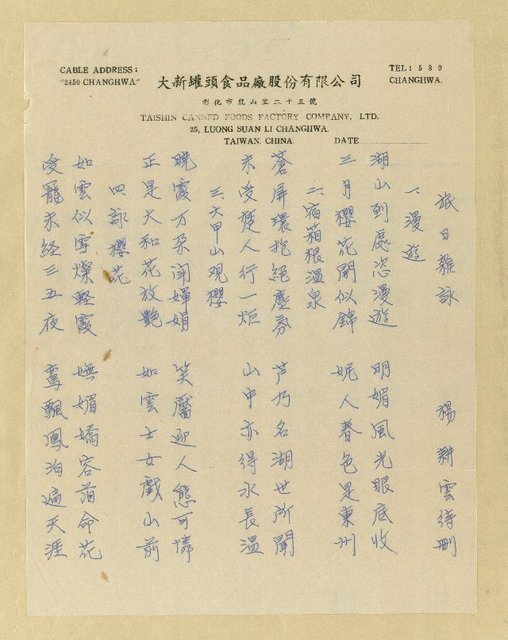 CABLE ADDRESS:
"2450 CHANGHWA"
大新罐頭食品廠股份有限公司
TEL: 539
CHANGHWA.
彰化市龍山里二十五號
TAISHIN CANNED FOODS FACTORY COMPANY, LTD.
25, LUONG SUAN LI CHANGHWA.
TAIWAN, CHINA.
DATE
旅日雜詠 楊耕雲待刪
一、漫遊
湖山到處恣漫遊 明媚風光眼底收
三月櫻花開似錦 妮人春色是東州
二、宿箱根溫泉
蒼屏環抱絕塵氛 芦乃名湖世所聞
未沒楚人行一炬 山中亦得水長溫
三、六甲山观櫻
曉霞万朶鬧嬋娟 笑靨迎人態可憐
正是大和花放艷 如雲士女戲山前
四詠櫻花
如雲似雪燦輕霞 嫵媚嬌容薄命花
沒寵未经三五夜 鸞飄鳳泊遍天涯